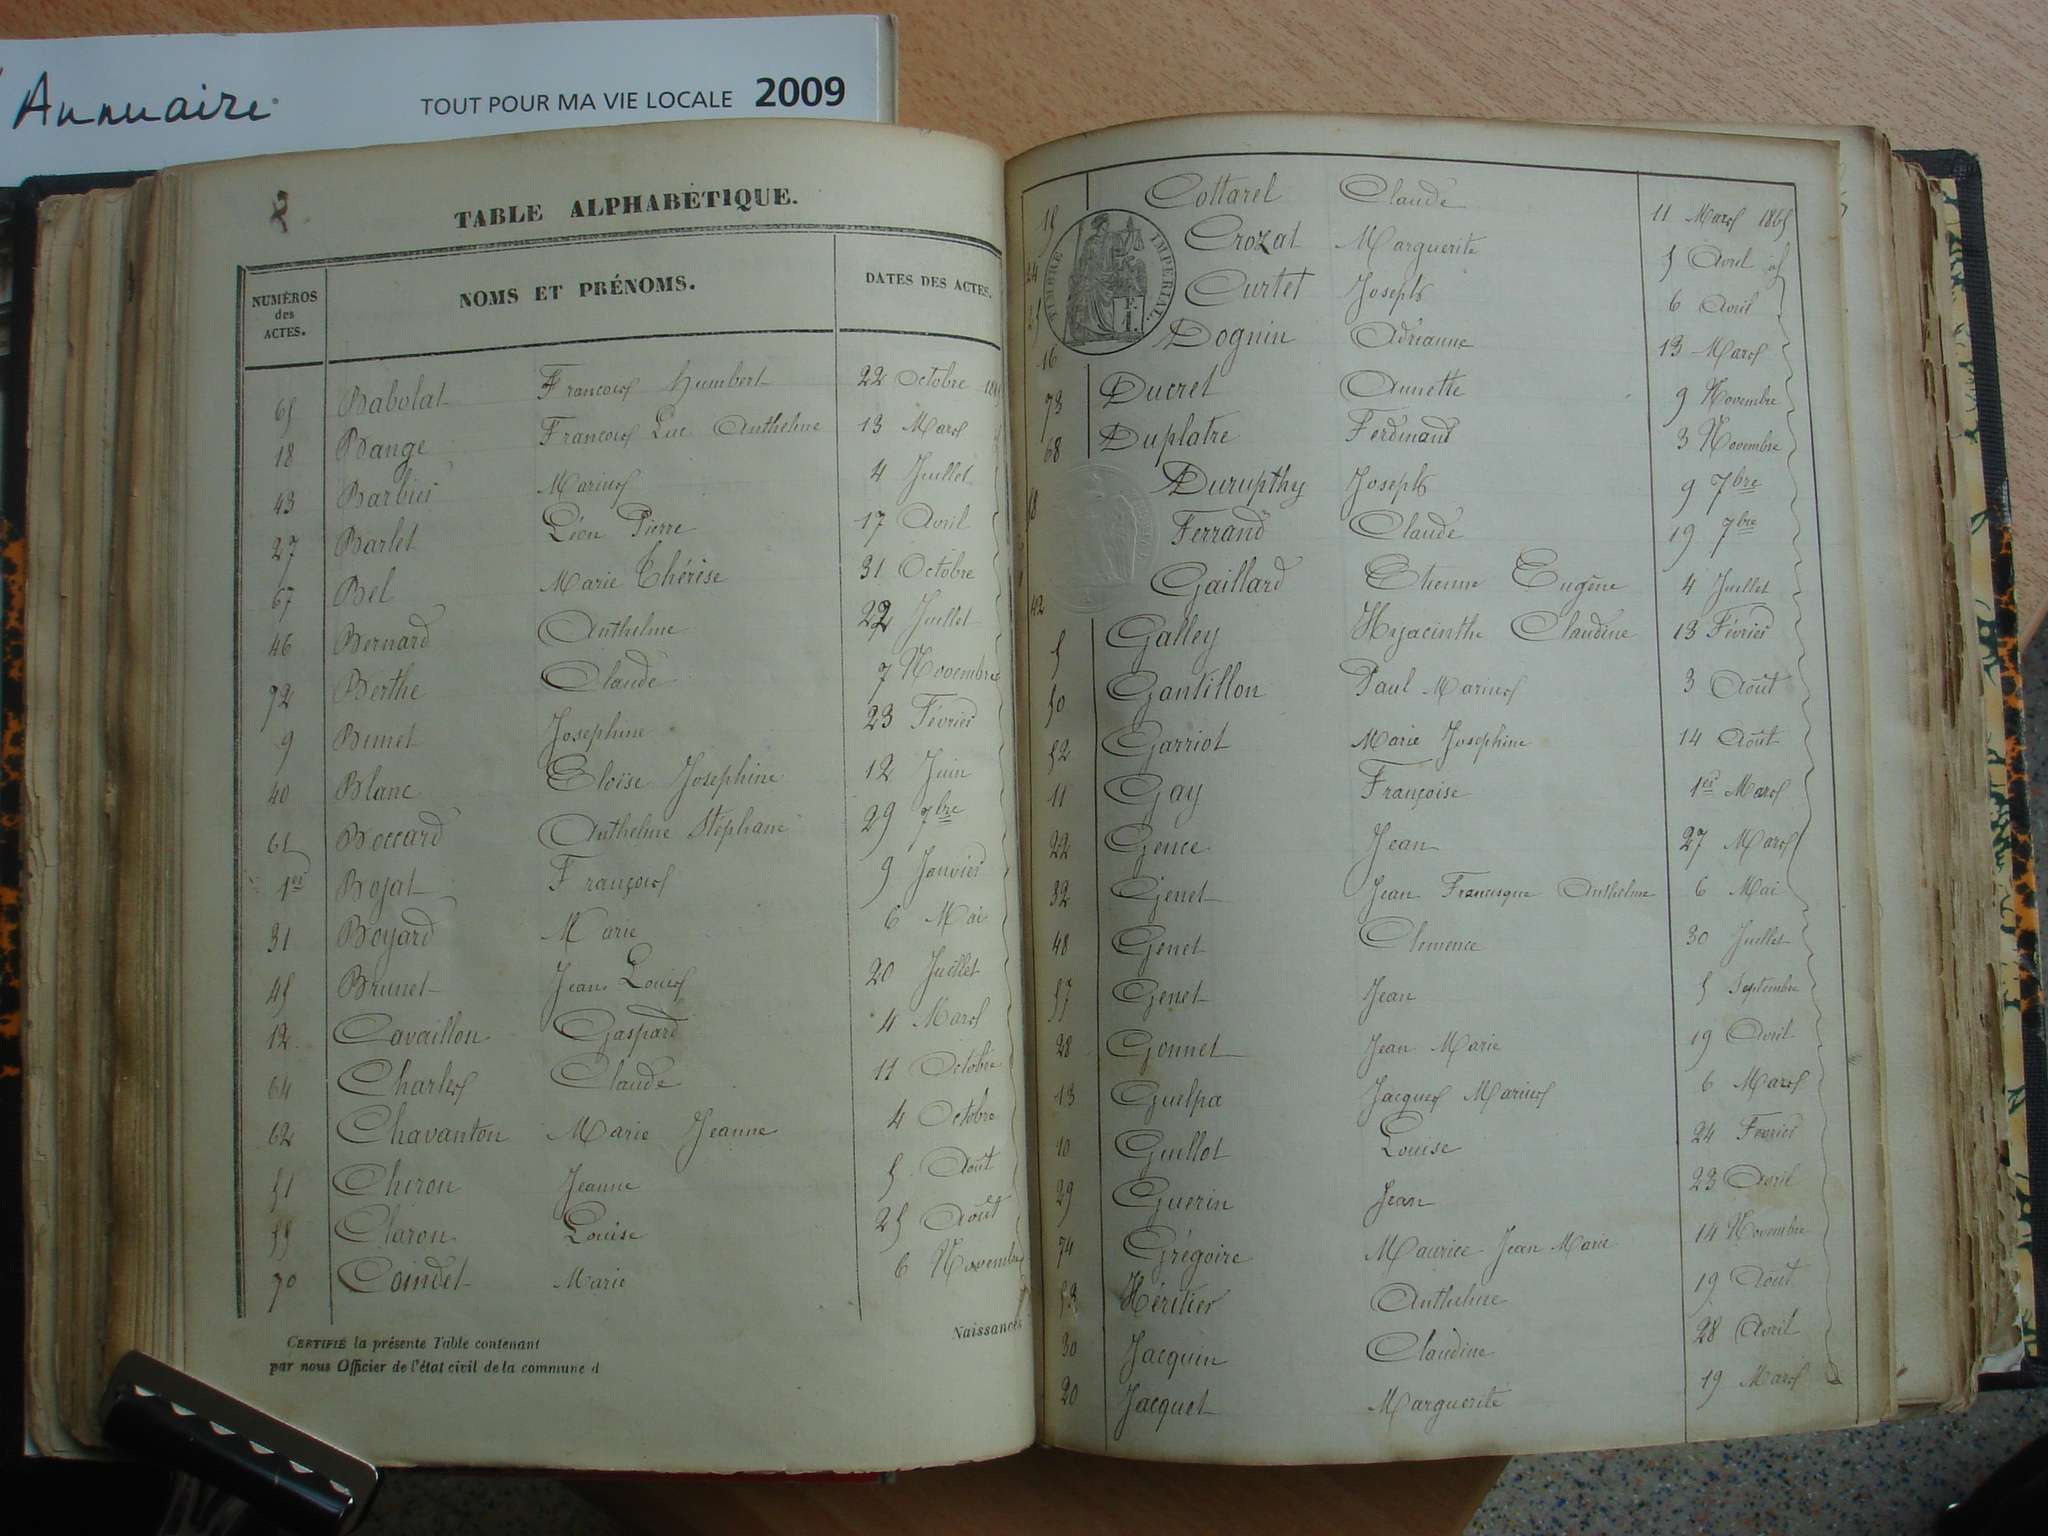 Annuaire
TOUT POUR MA VIE LOCALE 2009
2
TABLE ALPHABÉTIQUE.
NUMÉROS des ACTES. NOMS ET PRÉNOMS. DATES DES ACTES.
65 Babolat François Humbert 22 Octobre
18 Bange François Luc Anthelme 13 Mars
43 Barbier Marius 4 Juillet
27 Barlet Léon Pierre 17 Avril
67 Bel Marie Thérèse 31 Octobre
46 Bernard Anthelme 22 Juillet
72 Berthe Claude 7 Novembre
9 Josephine 23 Février
40 Blanc Eloïse Josephine 12 Juin
61 Boccard Anthelme Stéphane 29 7bre
1er Bojat François 9 Janvier
31 Boyard Marie 6 Mai
45 Brunet Jean Louis 20 Juillet
12 Cavaillon Gaspard 4 Mars
64 Charles Claude 11 Octobre
62 Chavanton Marie Jeanne 4 Octobre
51 Chiron Jeanne 5 Août
55 Claron Louise 25 Août
70 Coindet Marie 6 Novembre
Naissances
CERTIFIÉ la présente Table contenant
par nous Officier de l'état civil de la commune d
15 Cottarel Claude 11 Mars 1865
24 Crozat Marguerite 5 Avril
25 Curtet Joseph 6 Avril
TIMBRE IMPERIAL
F. 1.
16 Dognin Adrianne 13 Mars
73 Ducret Annette 9 Novembre
68 Duplatre Ferdinand 3 Novembre
Durupthy Joseph 9 7bre
Ferrand Claude 19 7bre
42 Gaillard Etienne Eugène 4 Juillet
5 Galley Hyacinthe Claudine 13 Février
50 Gantillon Paul Marius 3 Août
52 Garriot Marie Josephine 14 Août
11 Gay Françoise 1er Mars
22 Gence Jean 27 Mars
32 Genet Jean Francisque Anthelme 6 Mai
48 Genet Clemence 30 Juillet
57 Genet Jean 5 Septembre
28 Gonnet Jean Marie 19 Avril
13 Guelpa Jacques Marius 6 Mars
10 Guillot Louise 24 Février
29 Guerin Jean 23 Avril
74 Grégoire Maurice Jean Marie 14 Novembre
53 Héritier Anthelme 19 Août
30 Jacquin Claudine 28 Avril
20 Jacquet Marguerite 19 Mars